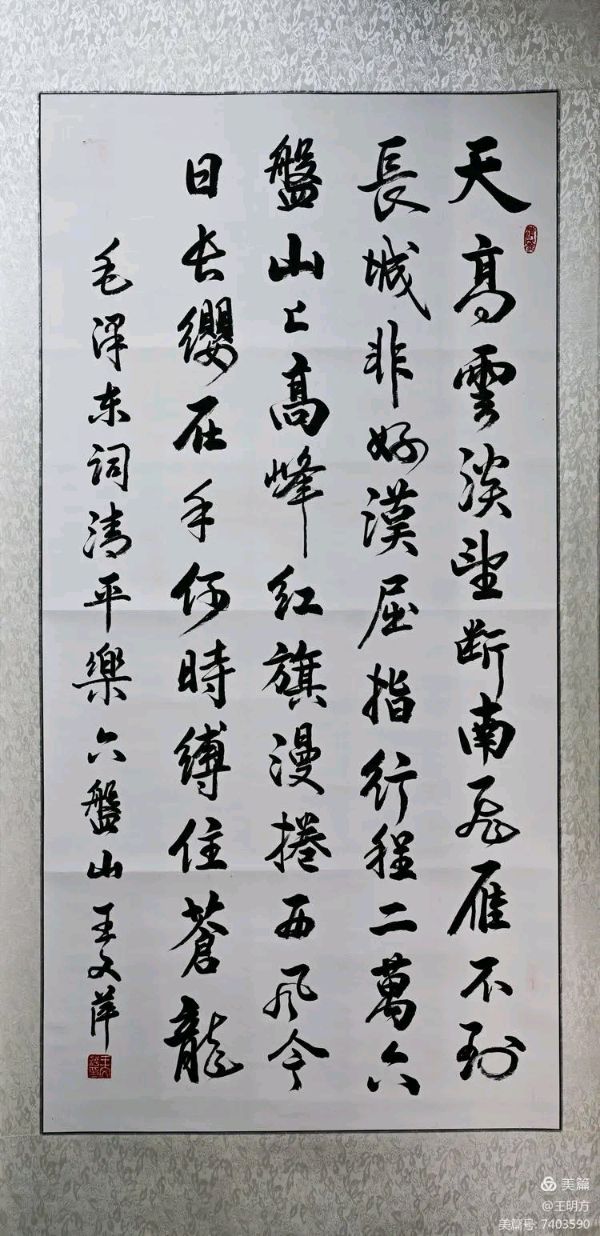 天高雲淡望断南飛雁不到
長城非好漢屈指行程二萬六
盤山上高峰红旗漫捲西风今
日长纓在手何時縛住蒼龍
毛泽东词清平樂六盤山王文萍
美篇
@王明方
美篇号: 7403590